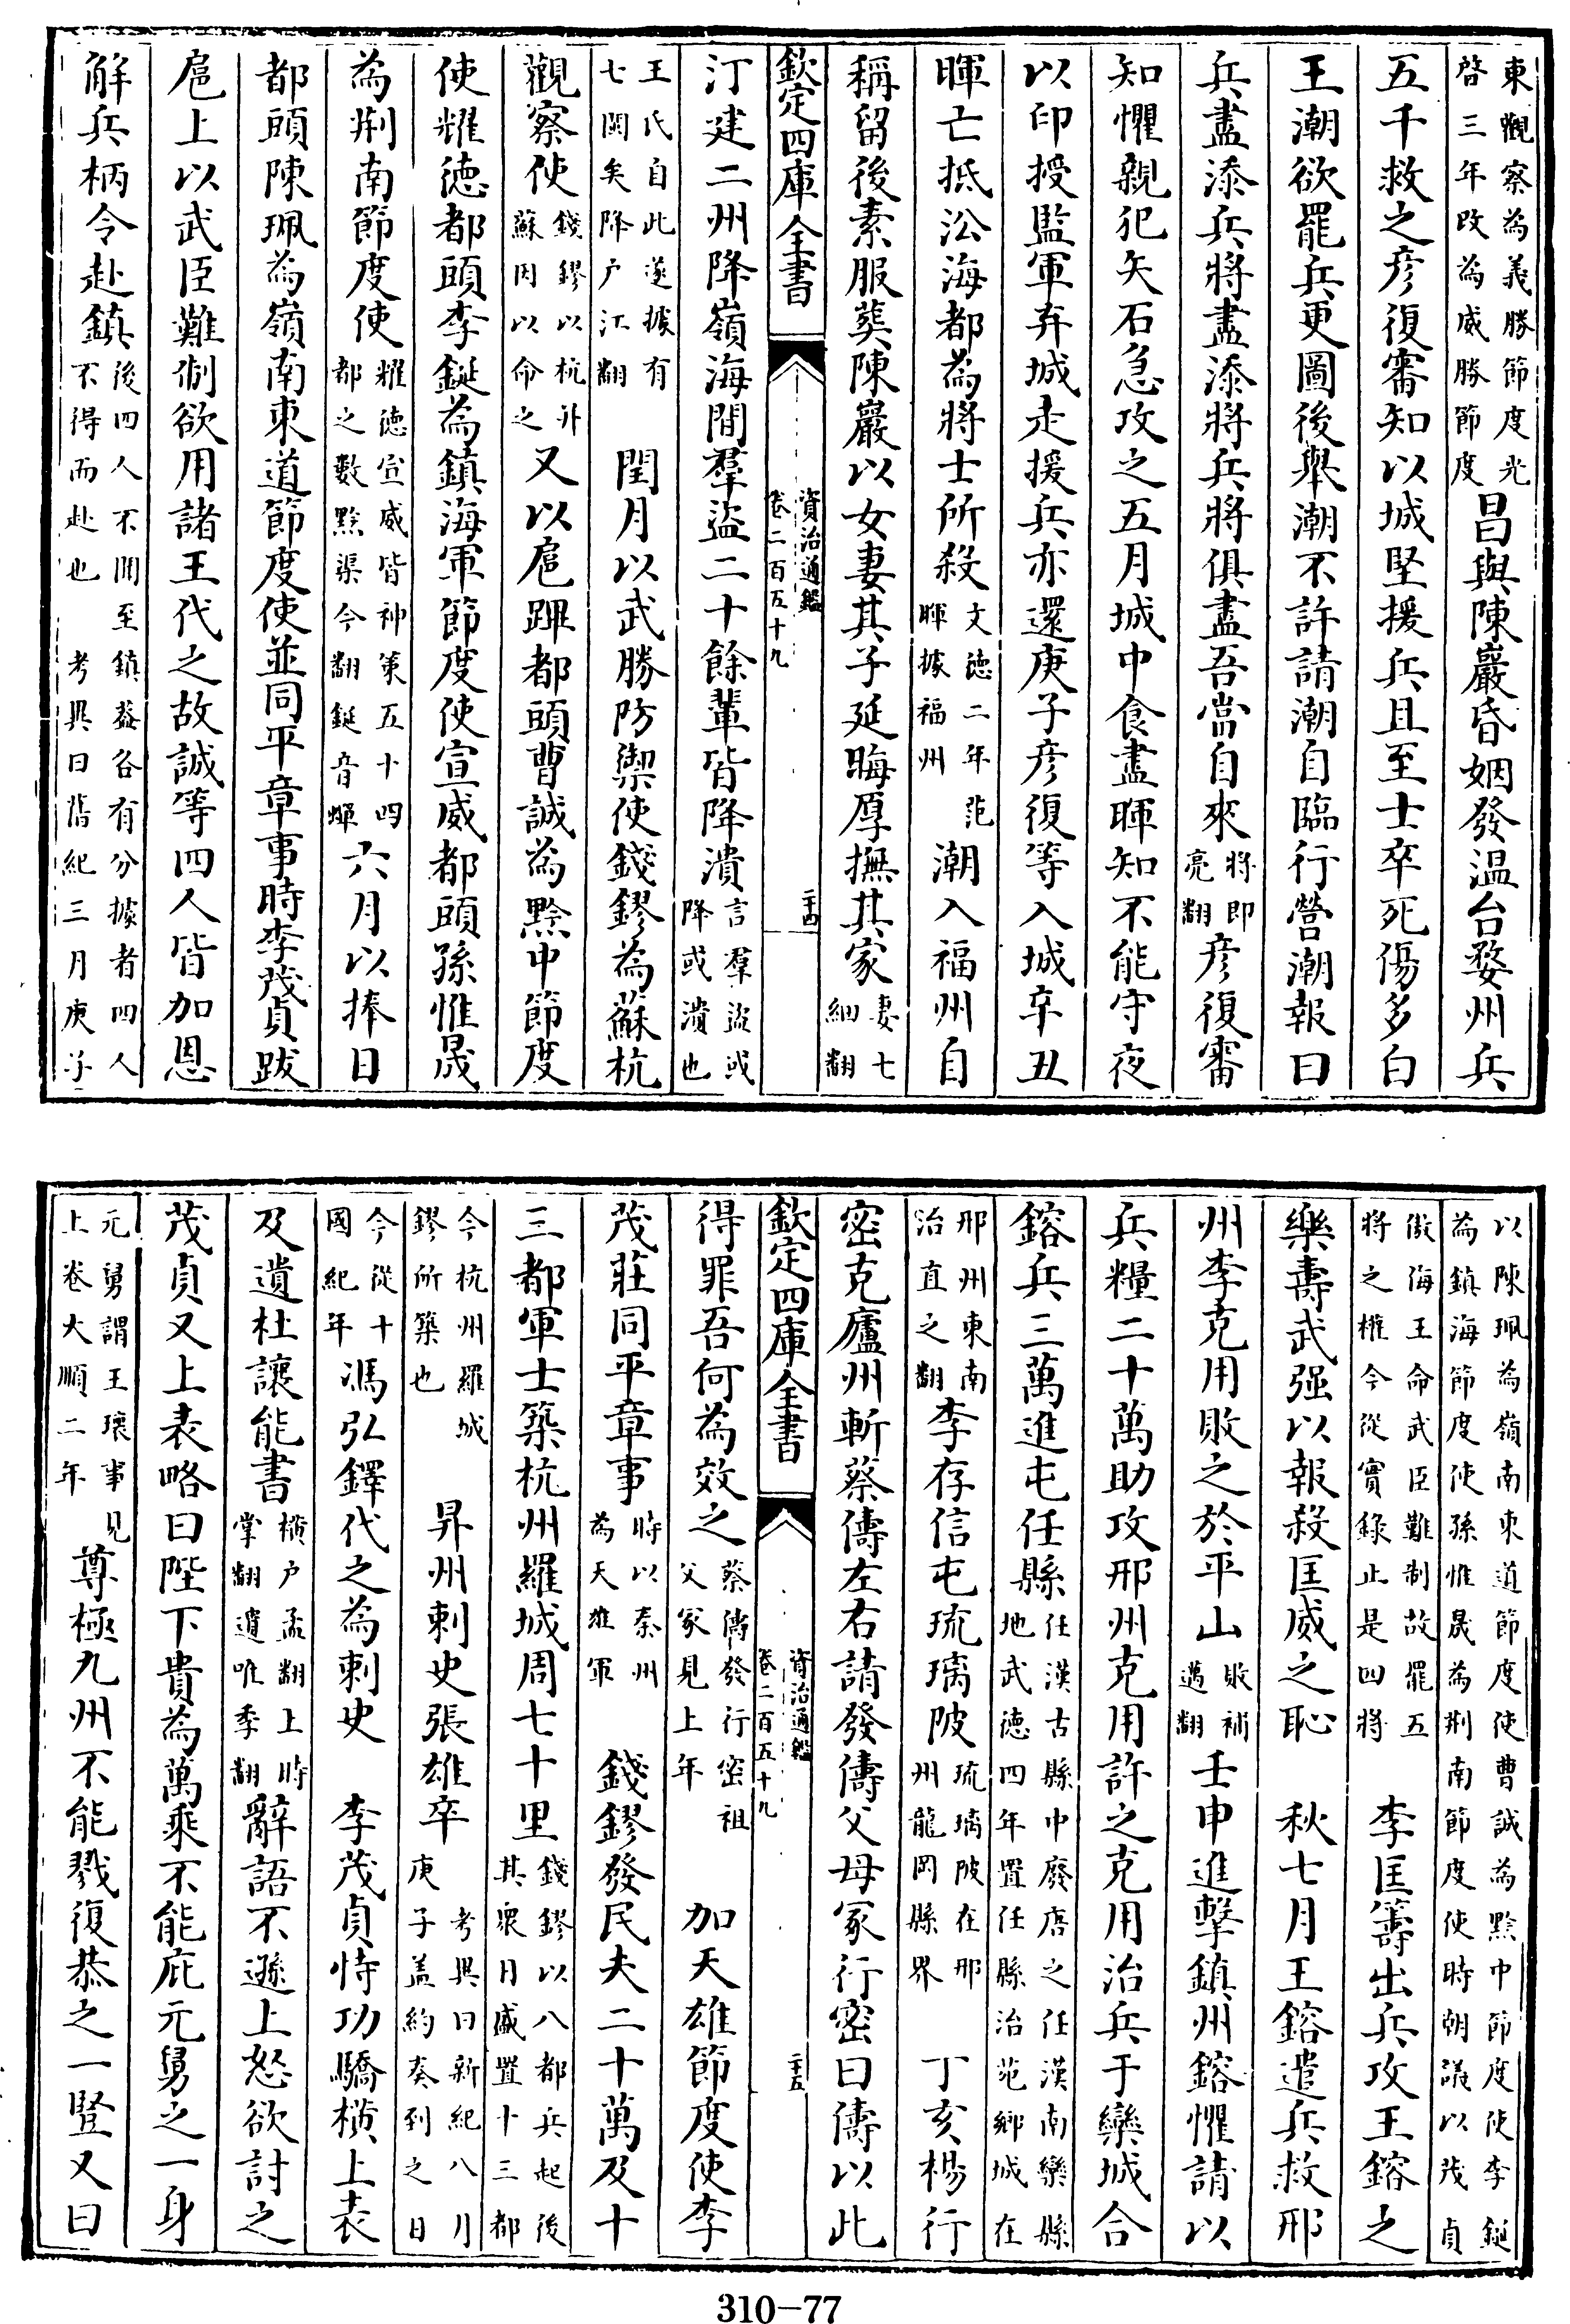 東觀察為義勝節度光
啓三年改為威勝節度
昌與陳巖昏姻發温台婺州兵
五千救之彦復審知以城堅援兵且至士卒死傷多白
王潮欲罷兵更圖後舉潮不許請潮自臨行營潮報曰
兵盡添兵將盡添將兵將俱盡吾當自來
將即
亮翻
彦復審
知懼親犯矢石急攻之五月城中食盡暉知不能守夜
以印授監軍弃城走援兵亦還庚子彦復等入城辛丑
暉亡抵㳂海都為將士所殺
文徳二年范
暉據福州
潮入福州自
稱留後素服葬陳巖以女妻其子延晦厚撫其家
妻七
細翻
欽定四庫全書
資治通鑑
卷二百五十九
二十四
汀建二州降嶺海間羣盗二十餘輩皆降潰
言羣盗或
降或潰也
王氏自此遂據有
七閩矣降户江翻
閏月以武勝防禦使錢鏐為蘇杭
觀察使
錢鏐以杭并
蘇因以命之
又以扈蹕都頭曹誠為黔中節度
使耀徳都頭李鋋為鎮海軍節度使宣威都頭孫惟晟
為荆南節度使
耀徳宣威皆神策五十四
都之數黔渠今翻鋋音蟬
六月以捧日
都頭陳珮為嶺南東道節度使並同平章事時李茂貞跋
扈上以武臣難制欲用諸王代之故誠等四人皆加恩
解兵柄令赴鎮
後四人不聞至鎮葢各有分據者四人
不得而赴也 考異曰舊紀三月庚子
以陳珮為嶺南東道節度使曹誠為黔中節度使李鋋
為鎮海節度使孫惟晟為荆南節度使時朝議以茂貞
傲侮王命武臣難制故罷五
將之權今從實録止是四將
李匡籌出兵攻王鎔之
樂壽武强以報殺匡威之恥 秋七月王鎔遣兵救邢
州李克用敗之於平山
敗補
邁翻
壬申進擊鎮州鎔懼請以
兵糧二十萬助攻邢州克用許之克用治兵于欒城合
鎔兵三萬進屯任縣
任漢古縣中廢唐之任漢南欒縣
地武徳四年置任縣治苑鄉城在
邢州東南
治直之翻
李存信屯琉璃陂
琉璃陂在邢
州龍岡縣界
丁亥楊行
密克廬州斬蔡儔左右請發儔父母冢行密曰儔以此
欽定四庫全書
資治通鑑
卷二百五十九
二十五
得罪吾何為效之
蔡儔發行密祖
父冢見上年
加天雄節度使李
茂莊同平章事
時以秦州
為天雄軍
錢鏐發民夫二十萬及十
三都軍士築杭州羅城周七十里
錢鏐以八都兵起後
其衆日盛置十三都
今杭州羅城
鏐所築也
昇州刺史張雄卒
考異曰新紀八月
庚子盖約奏到之日
今從十
國紀年
馮弘鐸代之為刺史 李茂貞恃功驕横上表
及遺杜讓能書
横户孟翻上時
掌翻遺唯季翻
辭語不遜上怒欲討之
茂貞又上表略曰陛下貴為萬乘不能庇元舅之一身
元舅謂王瓌事見
上卷大順二年
尊極九州不能戮復恭之一豎又曰
310-77